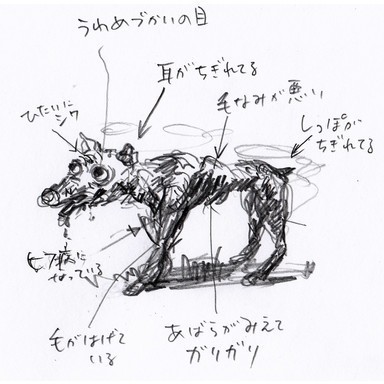 うわめづかいの目
耳がちぎれてる
毛なみが悪い
ひたいに
シワ
しっぽが
ちぎれてる
ヒフ病に
なっている
毛がはげて
いる
あばらがみえて
ガリガリ